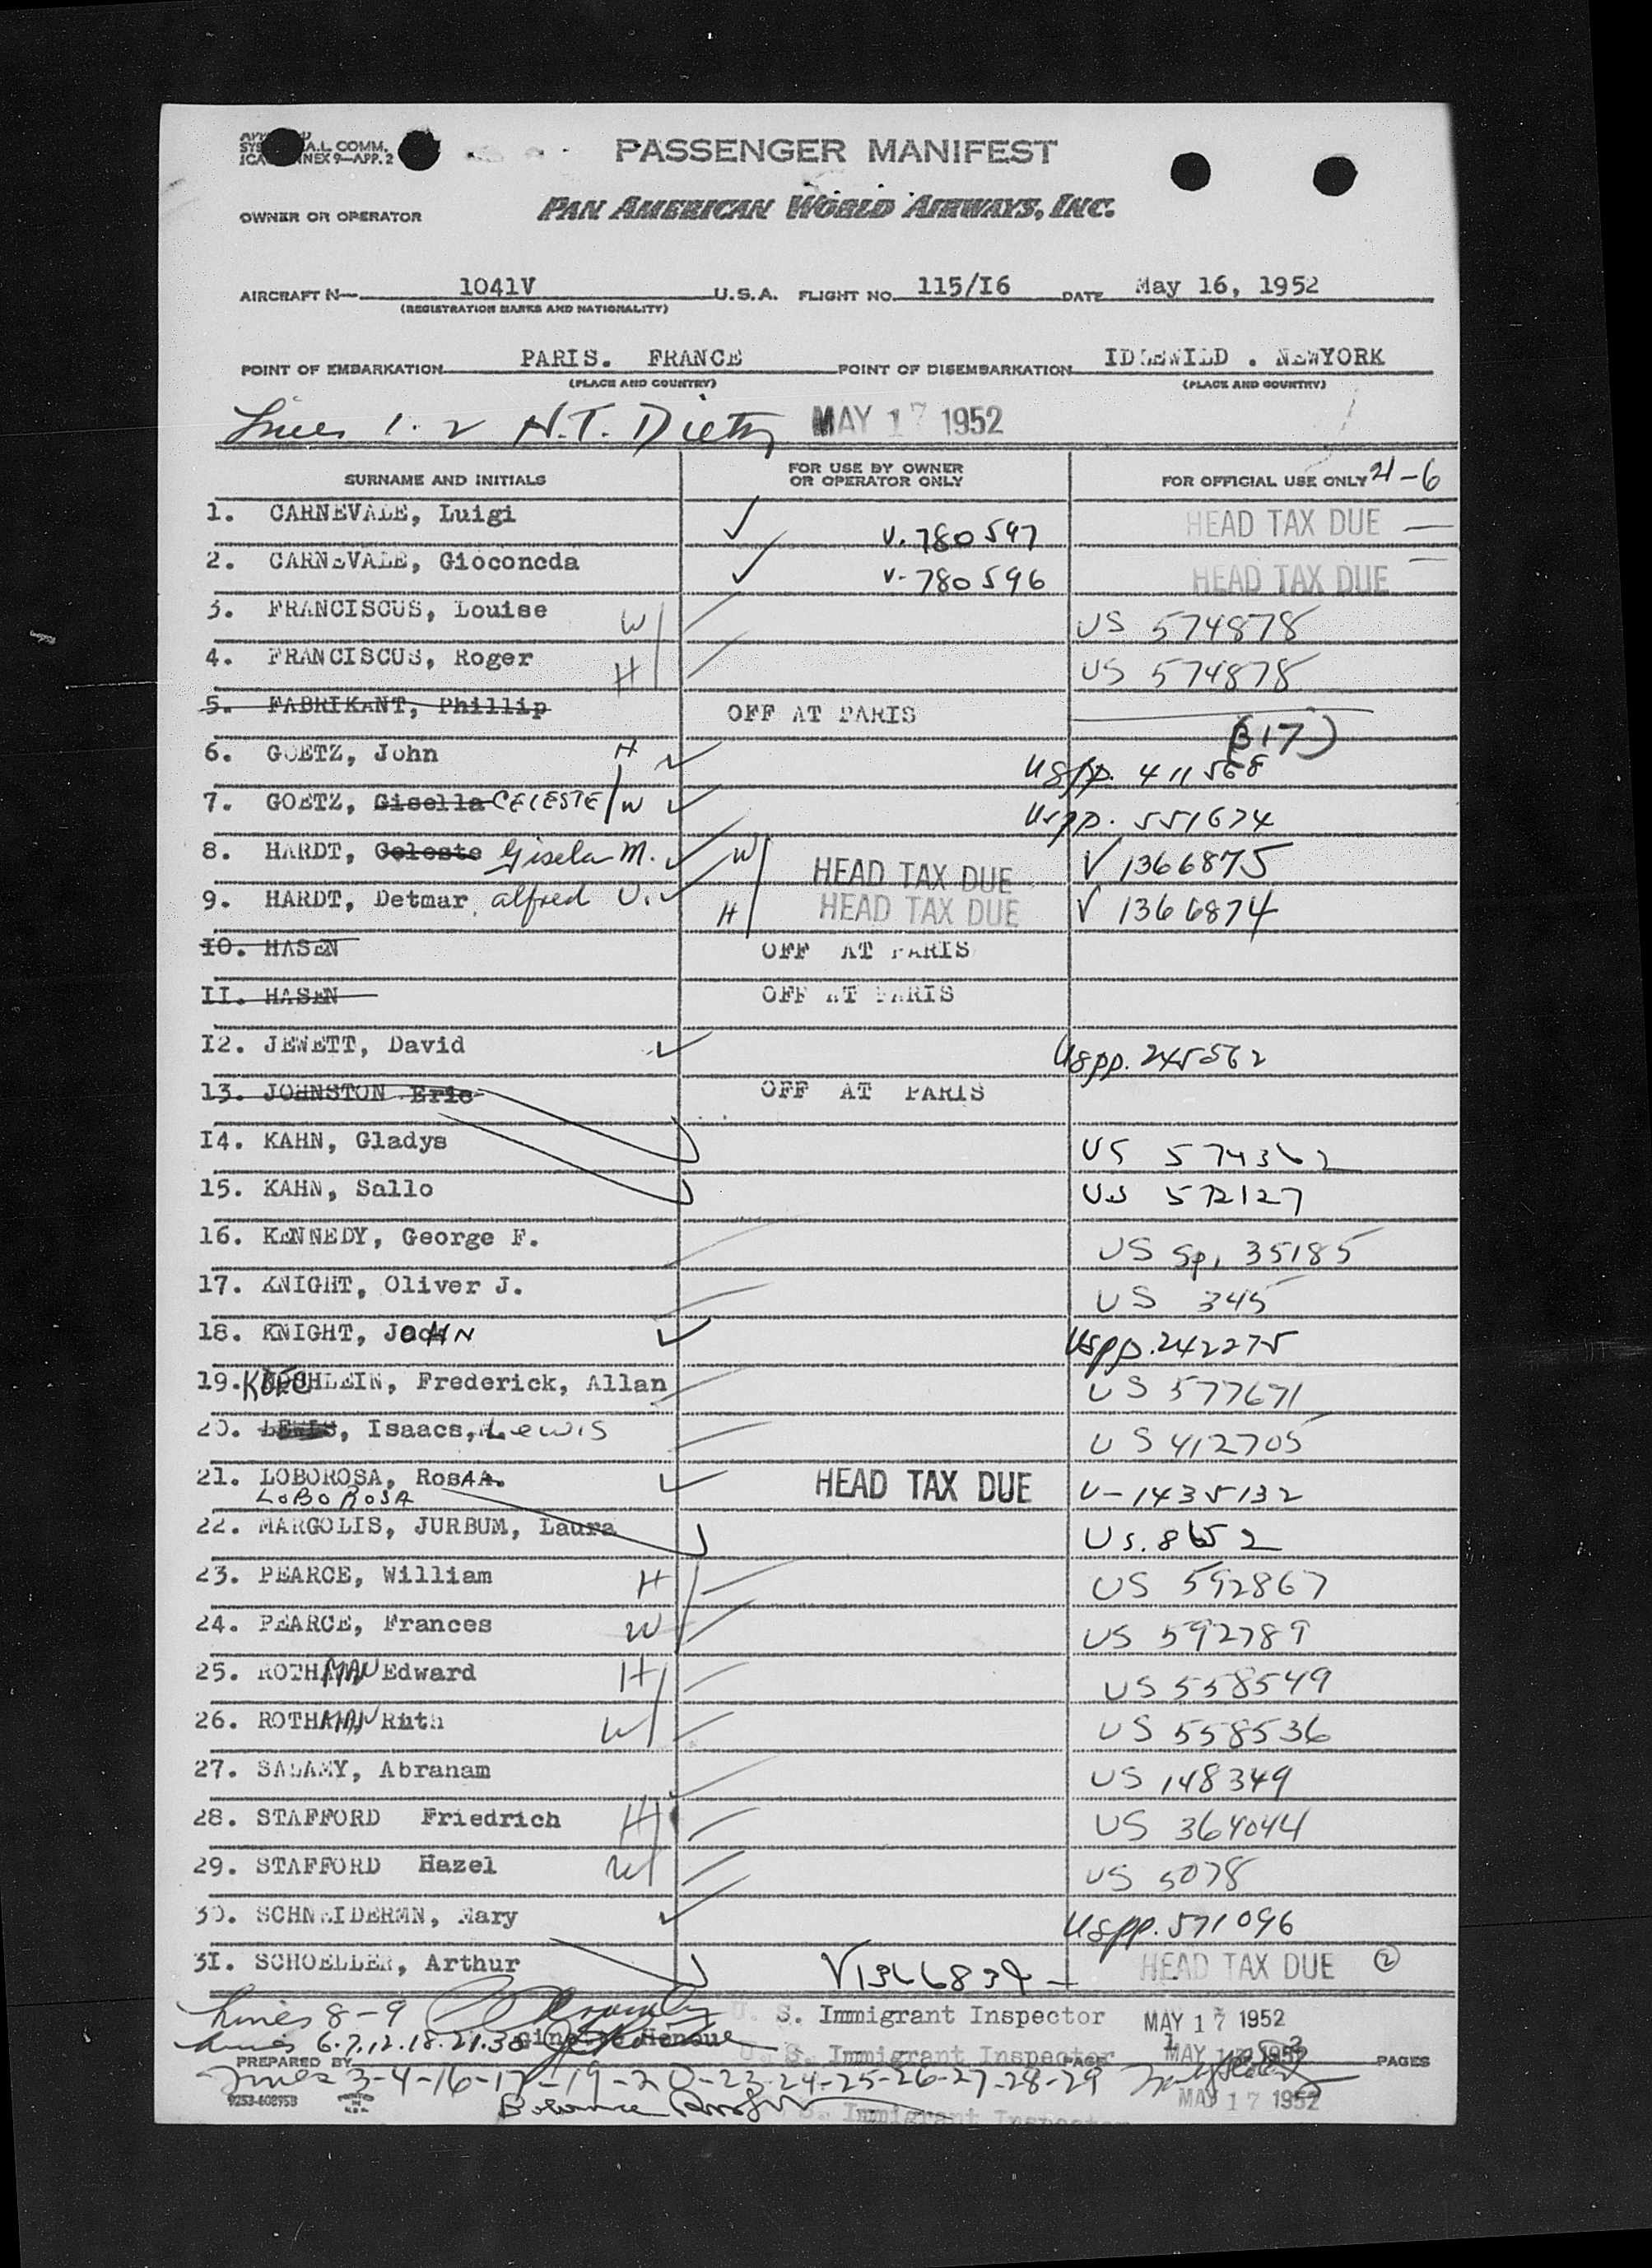 SYS A.L. COMM.
ICA ANNEX 9—APP. 2
PASSENGER MANIFEST
OWNER OR OPERATOR PAN AMERICAN WORLD AIRWAYS, INC.
AIRCRAFT N— 1041V U.S.A. FLIGHT NO. 115/I6 DATE May 16, 1952
(REGISTRATION MARKS AND NATIONALITY)
POINT OF EMBARKATION PARIS. FRANCE POINT OF DISEMBARKATION IDLEWILD . NEWYORK
(PLACE AND COUNTRY) (PLACE AND COUNTRY)
Lines 1-2 H.T. Dietz MAY 17 1952
SURNAME AND INITIALS FOR USE BY OWNER OR OPERATOR ONLY FOR OFFICIAL USE ONLY 21-6
1. CARNEVALE, Luigi V-780597 HEAD TAX DUE —
2. CARNEVALE, Gioconcda V-780596 HEAD TAX DUE —
3. FRANCISCUS, Louise W US 574878
4. FRANCISCUS, Roger H US 574878
5. FABRIKANT, Phillip OFF AT PARIS
(317)
6. GOETZ, John H uspp. 411568
7. GOETZ, Gisella CELESTE W uspp. 551674
8. HARDT, Celeste Gisela M. W HEAD TAX DUE V 1366875
9. HARDT, Detmar, alfred U. H HEAD TAX DUE V 1366874
IO. HASEN OFF AT PARIS
II. HASEN OFF AT PARIS
I2. JEWETT, David uspp. 245562
13. JOHNSTON Eric OFF AT PARIS
I4. KAHN, Gladys US 574362
15. KAHN, Sallo US 572127
16. KENNEDY, George F. US Sp. 35185
17. KNIGHT, Oliver J. US 345
18. KNIGHT, JOHN uspp. 242275
19. KOECHLEIN, Frederick, Allan US 577671
20. LEWIS, Isaacs, Lewis US 412705
21. LOBOROSA, Rosa A. HEAD TAX DUE V-1435132
LOBO ROSA
22. MARGOLIS, JURBUM, Laura US. 8652
23. PEARCE, William H US 592867
24. PEARCE, Frances W US 592789
25. ROTHMAN Edward H US 558549
26. ROTHMAN Ruth W US 558536
27. SALAMY, Abranam US 148349
28. STAFFORD Friedrich H US 364044
29. STAFFORD Hazel W US 5078
30. SCHNEIDERMN, Mary uspp. 571096
3I. SCHOELLER, Arthur V1366834 — HEAD TAX DUE 2
Lines 8-9 U. S. Immigrant Inspector MAY 17 1952
Lines 6.7.12.18.21.30 U. S. Immigrant Inspector MAY 17 1952
PREPARED BY PAGE 1 PAGES
Lines 3-4-16-17-19-20-23-24-25-26-27-28-29
9253-602953 Balance S. Immigrant Inspector MAY 17 1952